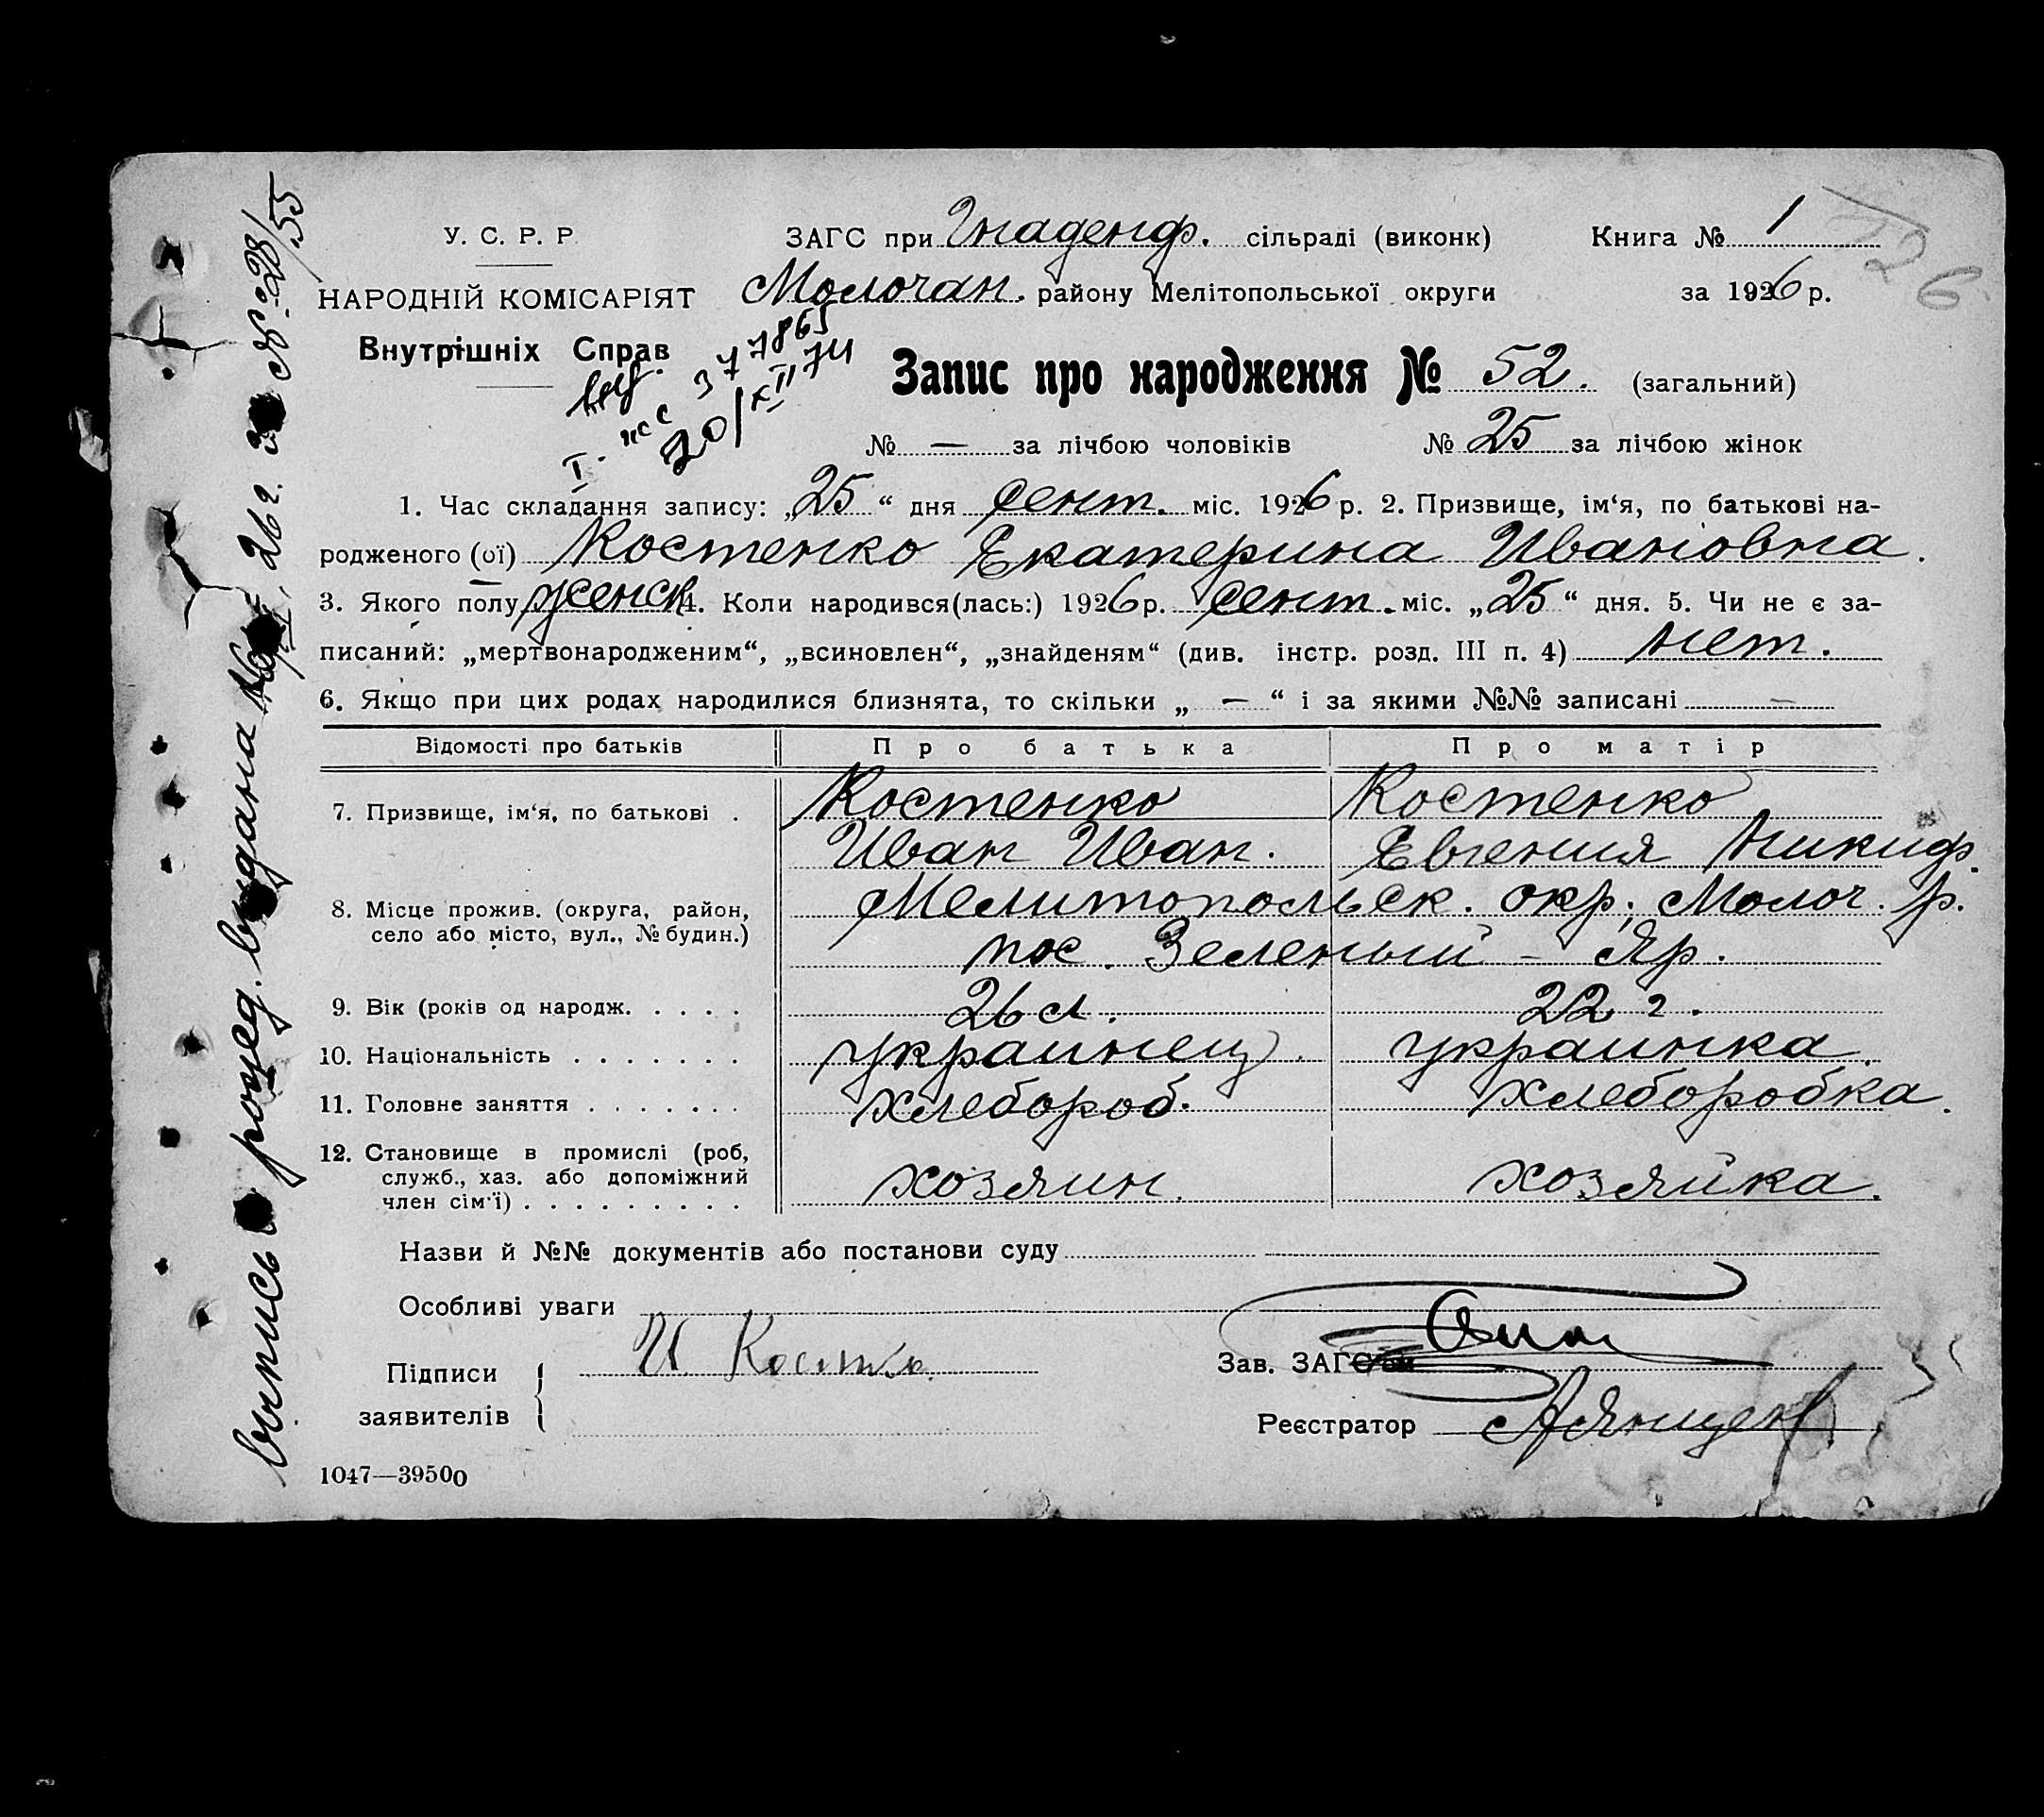 У. С. Р. Р
НАРОДНІЙ КОМІСАРІЯТ
Внутрішніх Справ.
ЗАГС при Гнаденф. сільраді (виконк)
Молочан. району Мелітопольської округи
Книга № 1
за 1926 р.
377865
20/XII 74
Запис про народження № 52. (загальний)
№ — за лічбою чоловіків № 25 за лічбою жінок
1. Час складання запису: „25“ дня сент. міс. 1926 р. 2. Призвище, ім‘я, по батькові на-
родженого (ої) Костенко Екатерина Ивановна.
3. Якого полу женск 4. Коли народився(лась:) 1926 р. сент. міс. „25“ дня. 5. Чи не є за-
писаний: „мертвонародженим“, „всиновлен“, „знайденям“ (див. інстр. розд. III п. 4) нет.
6. Якщо при цих родах народилися близнята, то скільки „ — “ і за якими №№ записані —
Відомості про батьків Про батька Про матір
7. Призвище, ім‘я, по батькові . Костенко Костенко
Иван Иван. Евгения Никиф.
8. Місце прожив. (округа, район, Мелитопольск. окр. Молоч. р.
село або місто, вул., № будин.) пос. Зеленый - Яр.
9. Вік (років од народж. . . . . 26 л. 22 г.
10. Національність . . . . . . . украинец. украинка.
11. Головне заняття . . . . . . . хлебороб. хлеборобка.
12. Становище в промислі (роб,
служб., хаз. або допоміжний хозяин. хозяйка.
член сім‘ї) . . . . . . . . .
Назви й №№ документів або постанови суду
Особливі уваги
Підписи
заявителів
И Костенко
Зав. ЗАГС‘ом
Реєстратор
1047—39500
выпись о рожд. выдана 26 г. за № 28/55